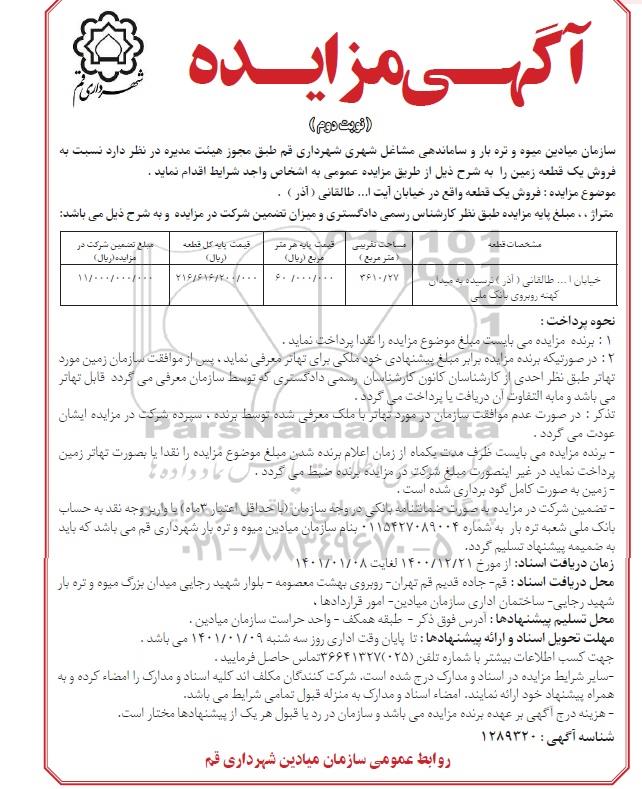 شهرداری قم
آگهی مزایده
(نوبت دوم)
سازمان میادین میوه و تره بار و ساماندهی مشاغل شهری شهرداری قم طبق مجوز هیئت مدیره در نظر دارد نسبت به
فروش یک قطعه زمین را به شرح ذیل از طریق مزایده عمومی به اشخاص واجد شرایط اقدام نماید .
موضوع مزایده : فروش یک قطعه واقع در خیابان آیت ا... طالقانی ( آذر ) .
متراژ ، ، مبلغ پایه مزایده طبق نظر کارشناس رسمی دادگستری و میزان تضمین شرکت در مزایده و به شرح ذیل می باشد:
مشخصات قطعه | مساحت تقریبی (متر مربع) | قیمت پایه هر متر مربع (ریال) | قیمت پایه کل قطعه (ریال) | مبلغ تضمین شرکت در مزایده(ریال)
خیابان ا ... طالقانی ( آذر ) نرسیده به میدان کهنه روبروی بانک ملی | ۳۶۱۰/۲۷ | ۶۰ /۰۰۰/۰۰۰ | ۲۱۶/۶۱۶/۲۰۰/۰۰۰ | ۱۱/۰۰۰/۰۰۰/۰۰۰
نحوه پرداخت :
۱ : برنده مزایده می بایست مبلغ موضوع مزایده را نقدا پرداخت نماید .
۲ : در صورتیکه برنده مزایده برابر مبلغ پیشنهادی خود ملکی برای تهاتر معرفی نماید ، پس از موافقت سازمان زمین مورد
تهاتر طبق نظر احدی از کارشناسان کانون کارشناسان رسمی دادگستری که توسط سازمان معرفی می گردد قابل تهاتر
می باشد و مابه التفاوت آن دریافت یا پرداخت می گردد .
تذکر : در صورت عدم موافقت سازمان در مورد تهاتر با ملک معرفی شده توسط برنده ، سپرده شرکت در مزایده ایشان
عودت می گردد .
- برنده مزایده می بایست ظرف مدت یکماه از زمان اعلام برنده شدن مبلغ موضوع مزایده را نقدا یا بصورت تهاتر زمین
پرداخت نماید در غیر اینصورت مبلغ شرکت در مزایده برنده ضبط می گردد .
- زمین به صورت کامل گود برداری شده است .
- تضمین شرکت در مزایده به صورت ضمانتنامه بانکی در وجه سازمان (با حداقل اعتبار ۳ماه) یا واریز وجه نقد به حساب
بانک ملی شعبه تره بار به شماره ۰۱۱۵۴۲۷۰۸۹۰۰۴ بنام سازمان میادین میوه و تره بار شهرداری قم می باشد که باید
به ضمیمه پیشنهاد تسلیم گردد.
زمان دریافت اسناد: از مورخ ۱۴۰۰/۱۲/۲۱ لغایت ۱۴۰۱/۰۱/۰۸
محل دریافت اسناد : قم- جاده قدیم قم تهران- روبروی بهشت معصومه - بلوار شهید رجایی میدان بزرگ میوه و تره بار
شهید رجایی- ساختمان اداری سازمان میادین- امور قراردادها ،
محل تسلیم پیشنهادها : آدرس فوق ذکر - طبقه همکف - واحد حراست سازمان میادین .
مهلت تحویل اسناد و ارائه پیشنهادها : تا پایان وقت اداری روز سه شنبه ۱۴۰۱/۰۱/۰۹ می باشد .
جهت کسب اطلاعات بیشتر با شماره تلفن (۰۲۵)۳۶۶۴۱۳۲۷تماس حاصل فرمایید .
-سایر شرایط مزایده در اسناد و مدارک درج شده است. شرکت کنندگان مکلف اند کلیه اسناد و مدارک را امضاء کرده و به
همراه پیشنهاد خود ارائه نمایند. امضاء اسناد و مدارک به منزله قبول تمامی شرایط می باشد.
- هزینه درج آگهی بر عهده برنده مزایده می باشد و سازمان در رد یا قبول هر یک از پیشنهادها مختار است.
شناسه آگهی : ۱۲۸۹۳۲۰
روابط عمومی سازمان میادین شهرداری قم
ParsNamadData
۰۲۱-۸۸۳۴۹۶۷۰-۵